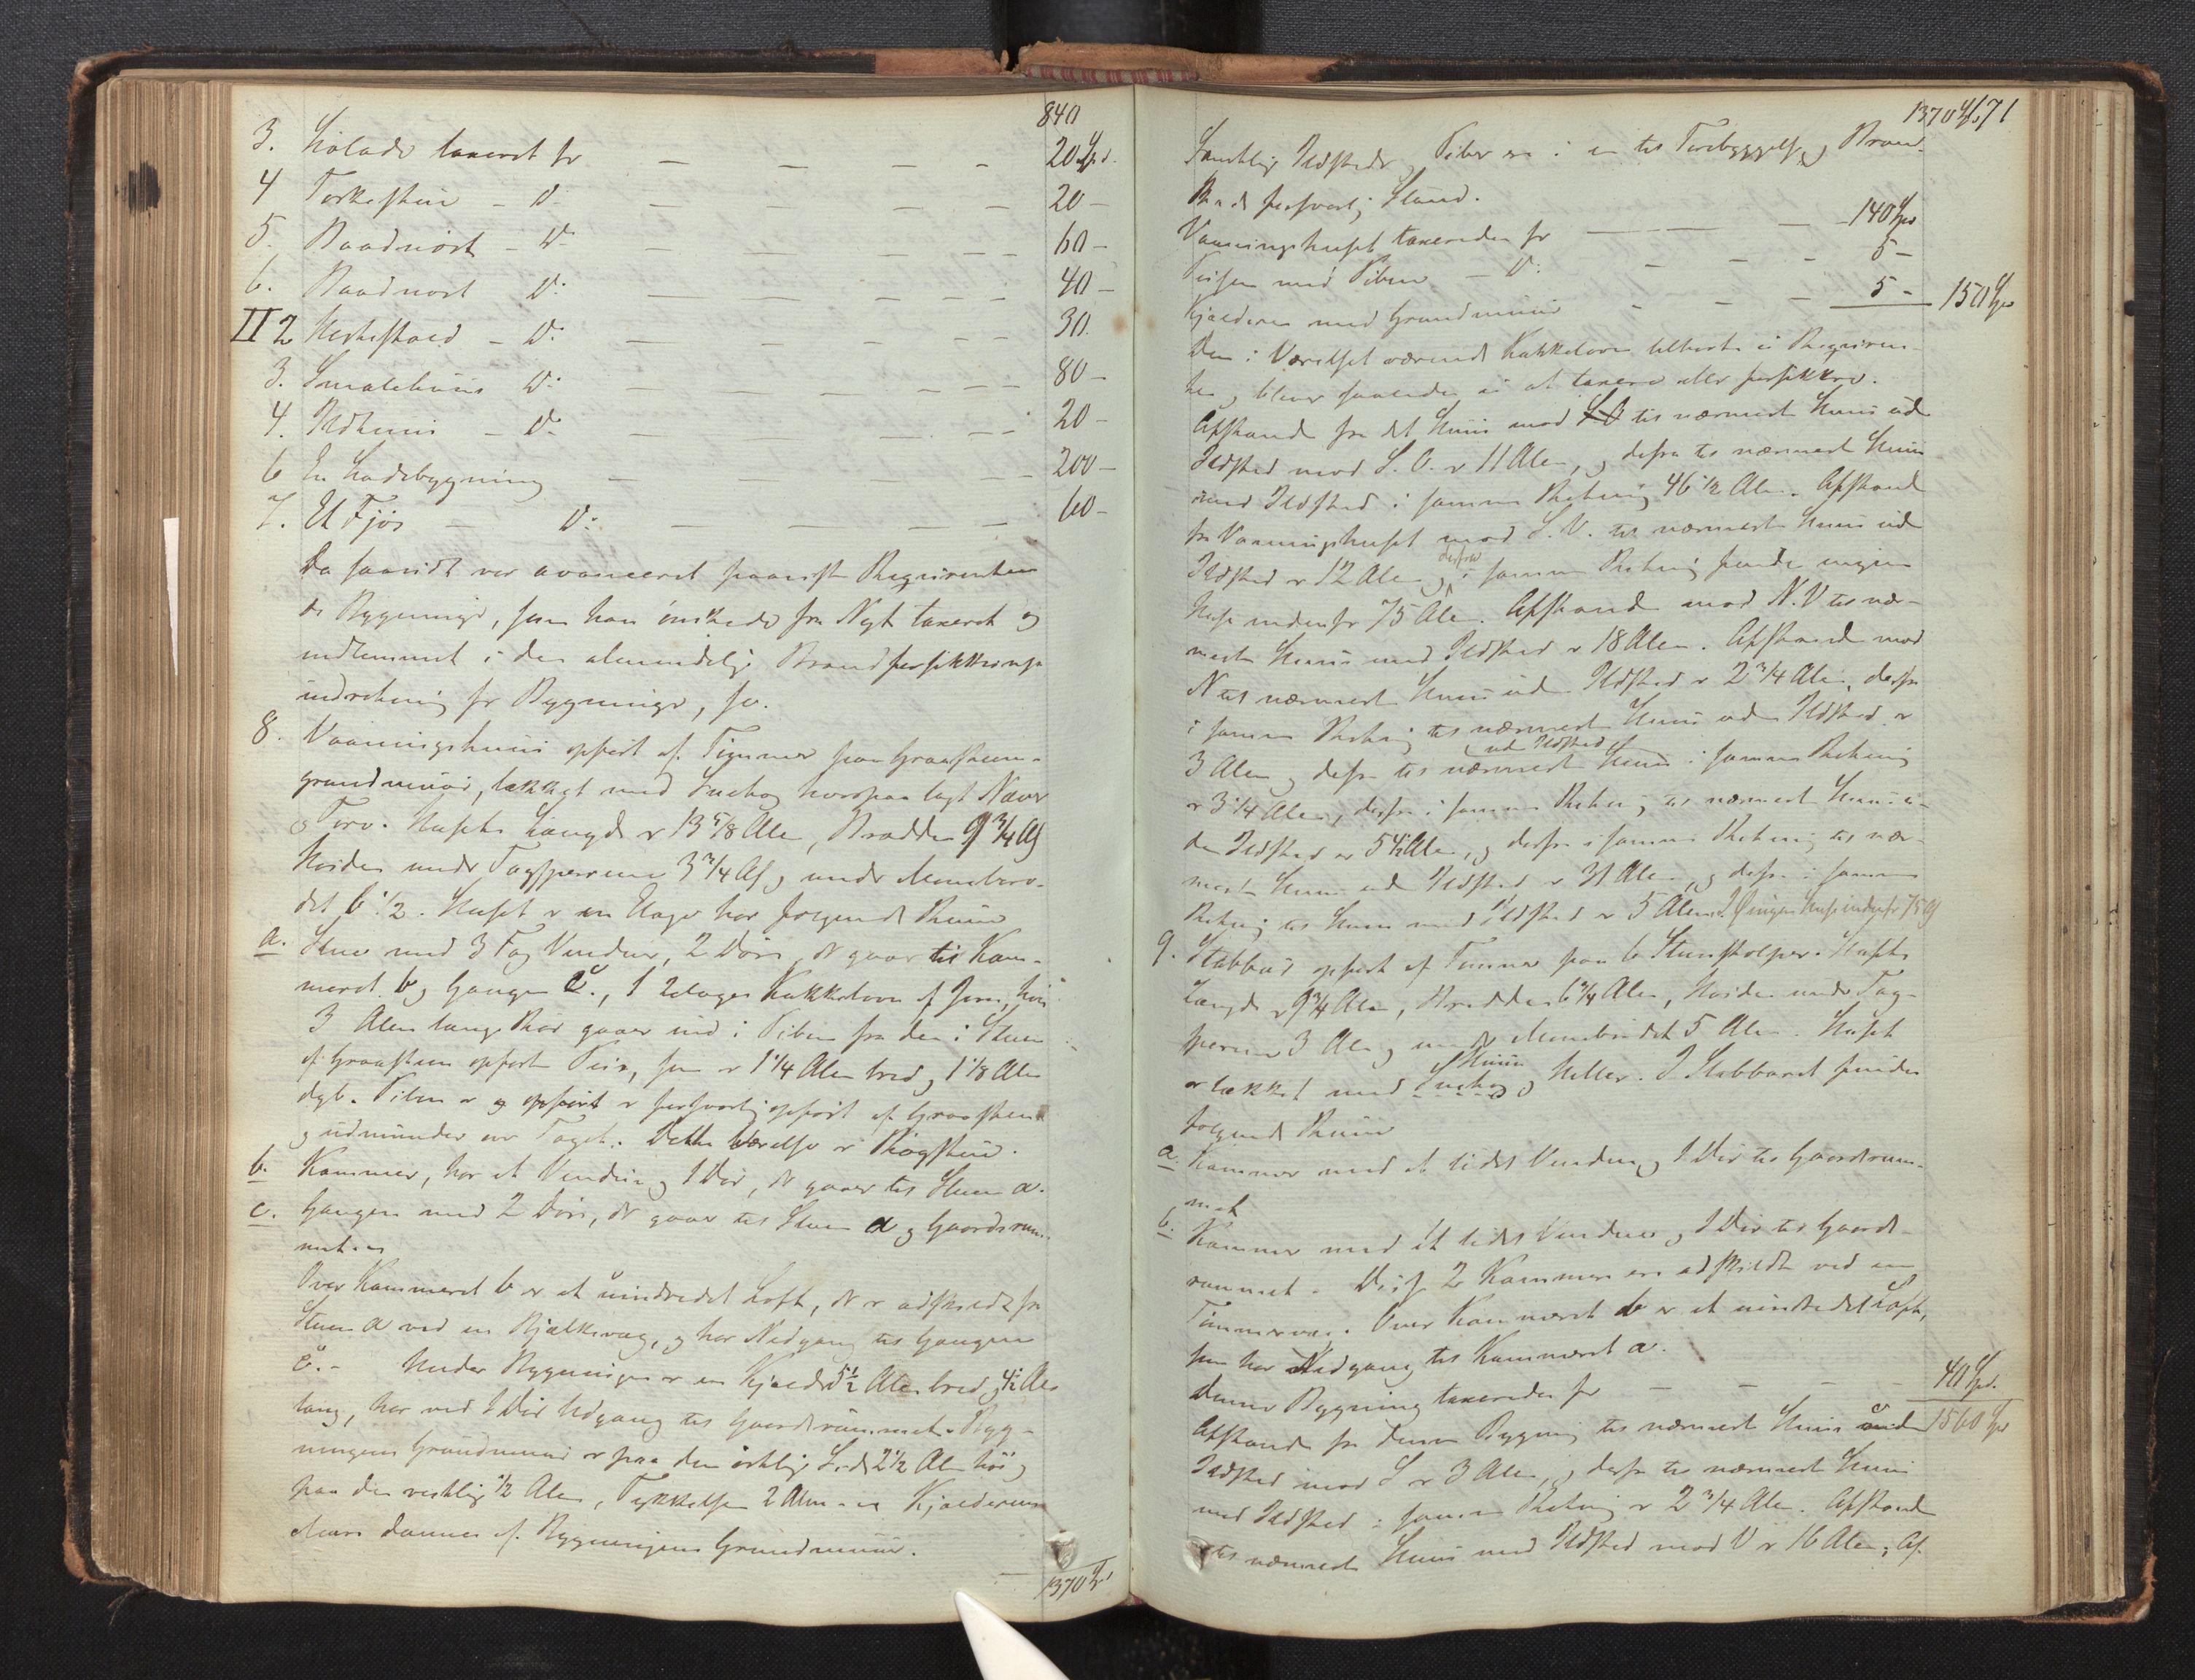 840
3. Høladv taxeret for — — — — 20 Spd.
4 Torkestue - D. — — — — 20 —
5. Baadnøst - D. — — — — 60 —
6. Baadnøst D: — — — — 40 —
II 2 Hestestald - D: — — — — 30.
3. Smalehuus D: — — — — 80 —
4. Ildhuus - D. — — — — 20 —
6 En Ladebygning — — — — 200 —
7. Et Fjøs — D: — — — — 60 —
Da saavidt var avanceret paaviste Requirenten
de Bygninger, som han ønskede fra Nyt taxeret og
indlemmet i den almindelige Brandforsikkrings
indretning for Bygninger, so.
8. Vaaningshuus opført af Tømmer paa Graasteen-
grundmuur, tækket med Suetag hvorpaa lagt Næver
og Torv. Husets Længde er 13 5/8 Alen, Bredden 9 3/4 Al,
Høiden under Tagsperrerne 3 3/4 Al og under Mønebor-
det 6 1/2. Huset er en Etage har følgende Ruum
a. Stue med 3 Fag Vinduer, 2 Døre, der gaar til Kam-
meret b og Gangen c., 1 2etages Kakkelovn af Jern, hvis
3 Alen lange Rør gaaer ind i Piben fra den i Stuen
af Graasteen opførte Peis, som er 1 1/4 Alen bred og 1 1/8 Alen
dyb. Piben er og opført er forsvarlig opført af Graasteen
og udmunder over Taget. Dette Værelse er Røgstue.
b. Kammer, har et Vindue og 1 Dør, der gaaer til Stuen a.
c. Gangen med 2 Døre, der gaar til Stuen a og Gaardsrum-
met.
Over Kammeret b er et uindredet Loft, der er adskildt fra
Stuen a ved en Bjælkevæg, og har Nedgang til Gangen
c. - Under Bygningen er en Kjælder 5 1/2 Alen bred og 4 1/2 Alen
lang, har ved 1 Dør Udgang til Gaardsrummet. Byg-
ningens Grundmuur er paa den østlige Side 2 1/2 Alen høi og
paa den vestlige 1/2 Alen, Tykkelsen 2 Alen. Kjælderens
Mure dannes af Bygningens Grundmuur.
— 1370 Spd
1370 Spd. 71
Samtlige Ildsteder og Piber ere i en til Forebyggelse af Brand-
skade forsvarlig Stand.
Vaaningshuset taxeredes for — — — 140 Spd
Peisen med Piben - D: - - - 5 -
Kjælderen med Grundmuur - - - 5 - 150 Spd
Den i Værelset værende Kakkelovn tilhører ei Requiren-
ten og bliver saaledes ei at taxere eller forsikkre.
Afstand fra det Huus mod S.O til nærmeste Huus uden
Ildsted mod S. O. er 11 Alen, og derfra til nærmeste Huus
med Ildsted i samme Retning 46 1/2 Alen. Afstand
fra Vaaningshuset mod S. V. til nærmeste Huus uden
Ildsted er 12 Alen og derfra i samme Retning findes ingen
Huse indenfor 75 Alen. Afstand mod N. V til nær-
meste Huus med Ildsted er 18 Alen. Afstand mod
N til nærmeste Huus uden Ildsted er 2 3/4 Alen, derfra
i samme Retning til nærmeste Huus uden Ildsted er
3 Alen og derfra til nærmeste Huus uden Ildsted i samme Retning
er 3 1/4 Alen, derfra i samme Retning til nærmeste Huus u-
den Ildsted er 5 1/2 Alen, og derfra i samme Retning til nær-
meste Huus uden Ildsted er 31 Alen, og derfra i samme
Retning til Huus med Ildsted er 5 Alen. I Ø ingen Huse indenfor 75 Al
9. Stabbur opført af Tømmer paa 6 Steenstolper. Husets
Længde er 9 3/4 Alen, Bredden 6 3/4 Alen, Høiden under Tag-
sperrene 3 Alen og under Mønebordet 5 Alen. Huset
er tækket med Suetag og Heller. I Stabburet findes
følgende Ruum
a. Kammer med et lidet Vindue og 1 Dør til Gaardsrum-
met
b. Kammer med et lidet Vindue og 1 Dør til Gaards-
rummet. Disse 2 Kammere ere adskildte ved en
Tømmervæg. Over Kammeret b er et uindredet Loft,
som har Nedgang til Kammeret a.
Denne Bygning taxeredes for — — — 40 Spd.
Afstand fra denne Bygning til nærmeste Huus uden 1560 Spd
Ildsted mod S er 3 Alen, og derfra til nærmeste Huus
med Ildsted i samme Retning er 2 3/4 Alen. Afstand
til nærmeste Huus med Ildsted mod V er 16 Alen, Af-